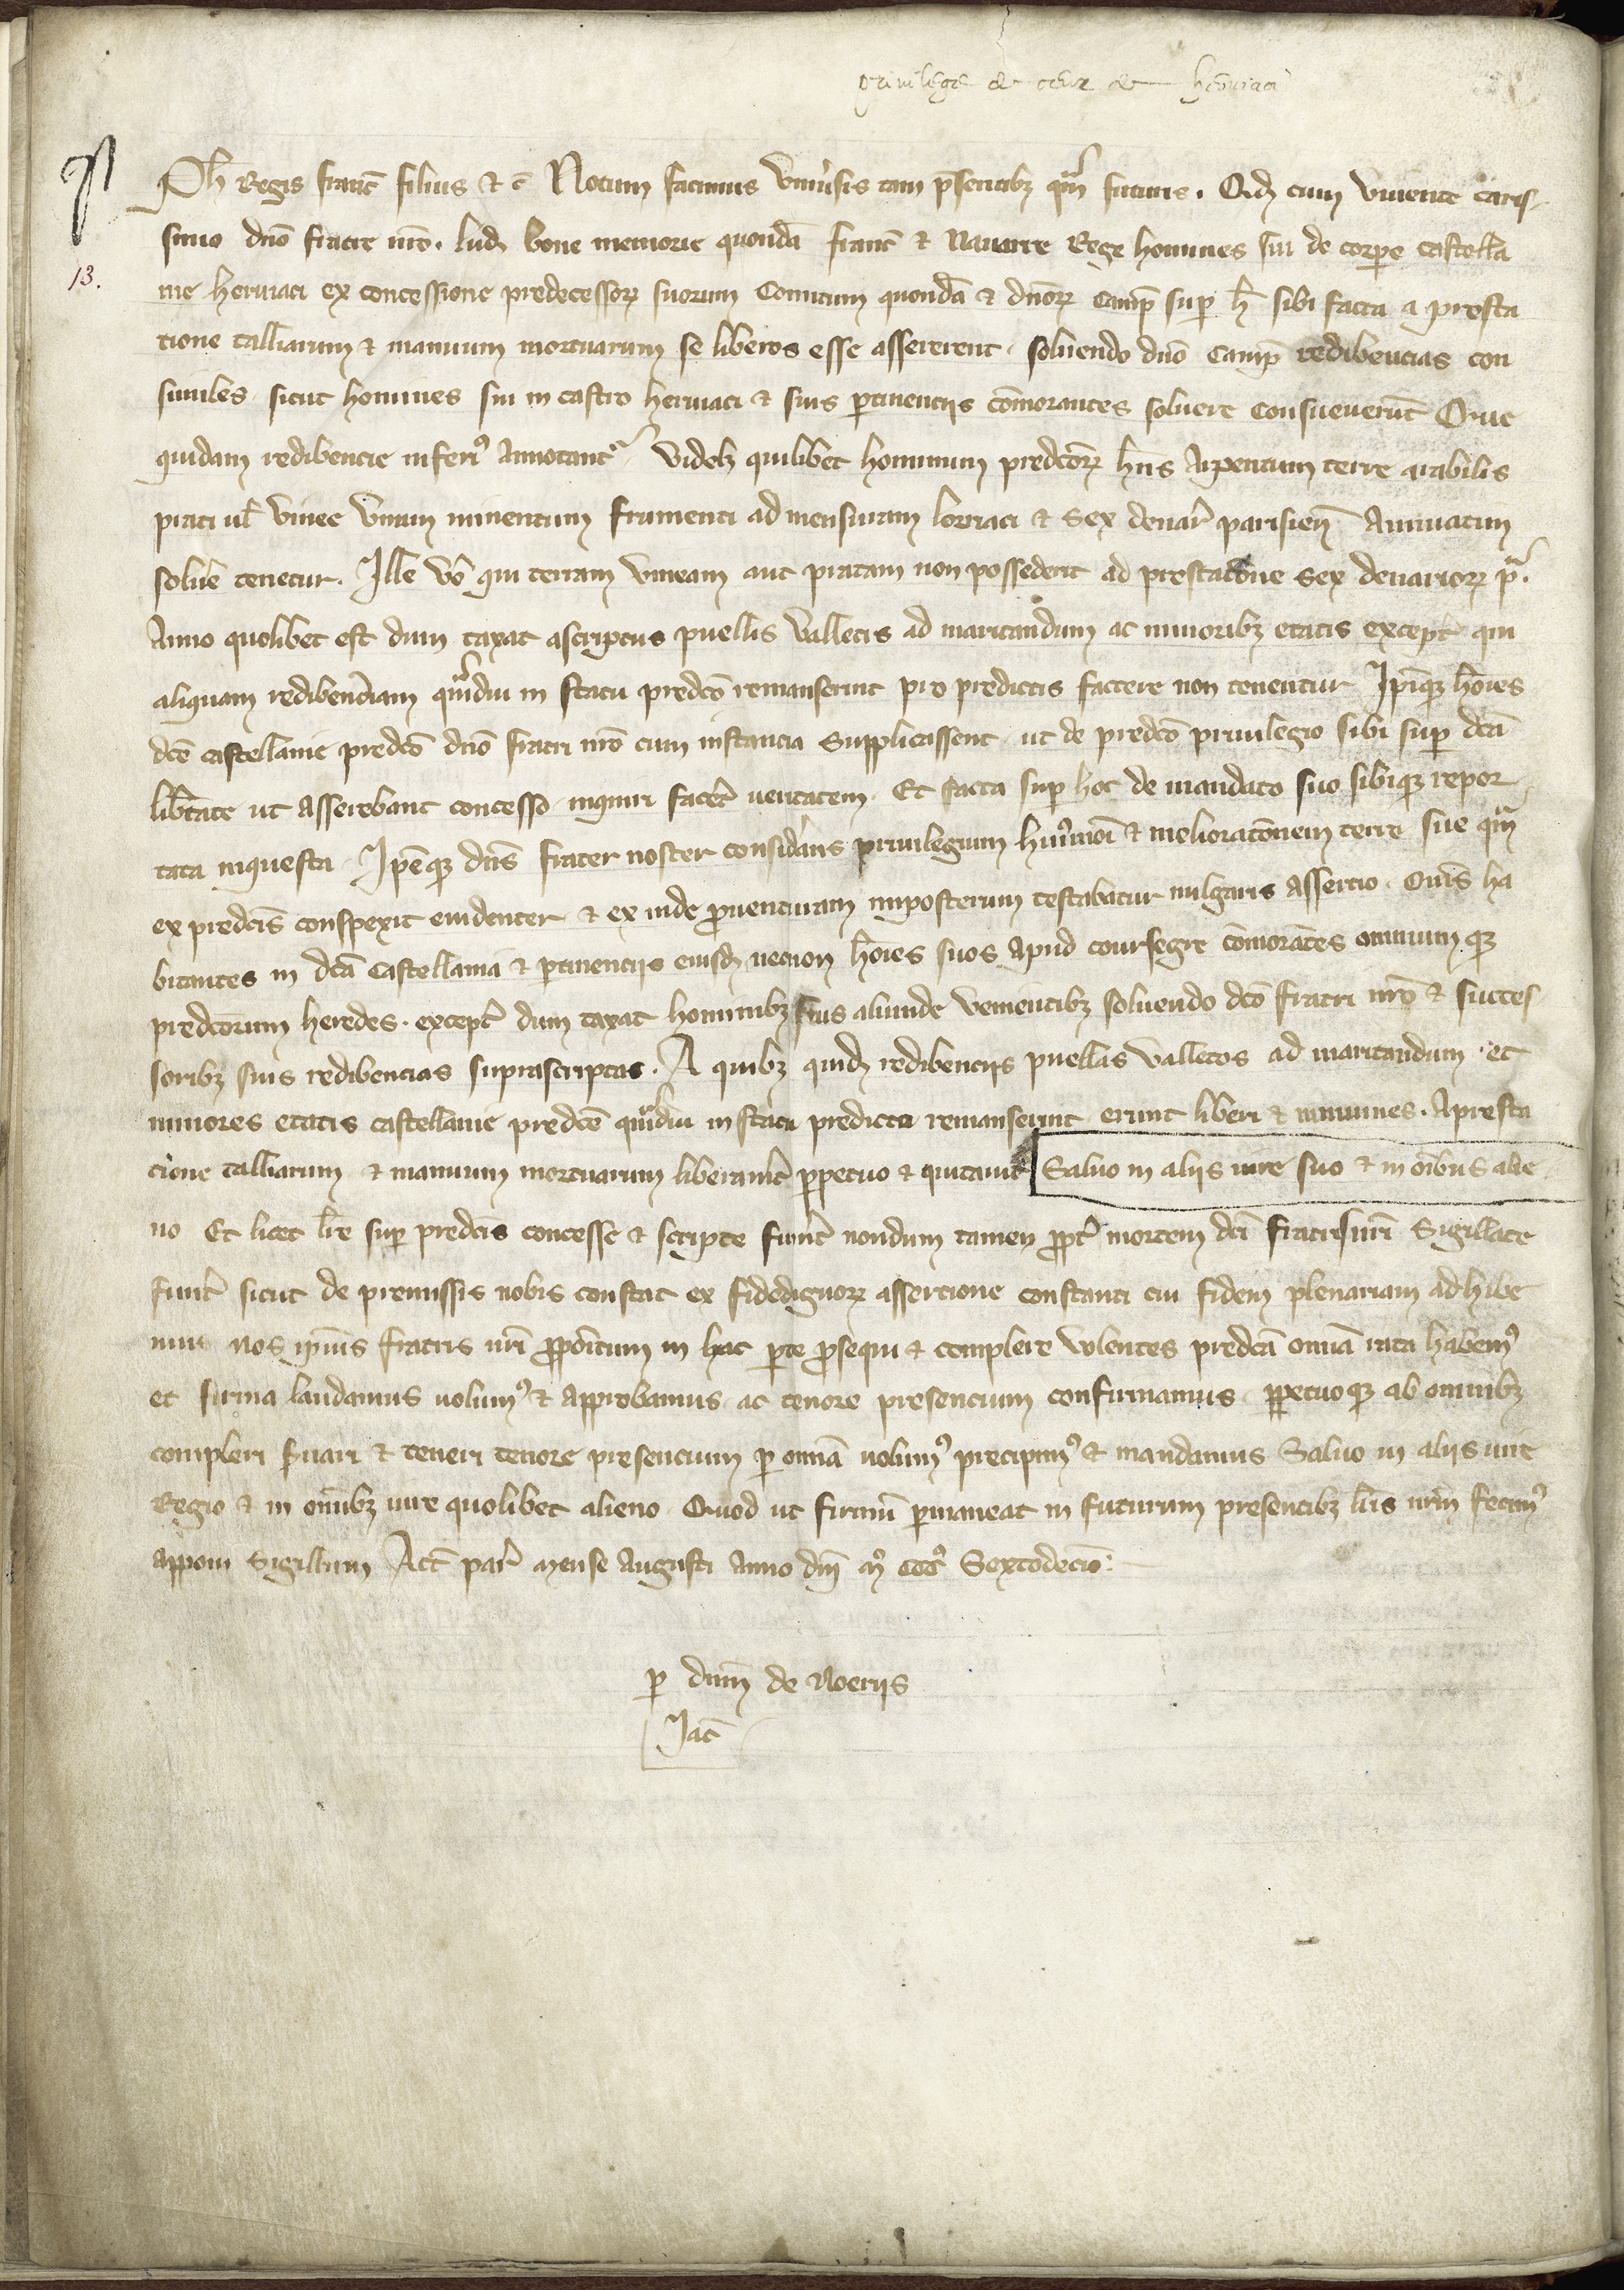 privilege de ceux de herviaci
13.
Ph Regis franc̄ filius ⁊ c̄ Notum facimus Univ̓sis tam p̄sentibꝫ qͣm futuris . Qđ cum vivente caris-
simo dn̄o fratre nr̄o . lud̓ bone memorie quondā franc̄ ⁊ Navarre Rege homines sui de corꝑe castella
nie herviaci ex concessione predecessoꝝ suorum Comitum quondā ⁊ dn̄oꝝ Camp̄ suꝑ h̄ sibi facta a presta
tione talliarum ⁊ manuum mortuarum se liberos esse assererent . solvendo dn̄o Camp̄ redibencias con
similes sicut homines sui in castro herviaci ⁊ suis ꝑtinenciis cōmorantes solvere consueverūt Que
quidam redibencie inferiꝰ annotant᷑ Videlꝫ quilibet hominum predc̄oꝝ hn̄s Arpentum terre arabilis
prati ul̄ vinee unum minentum frumenti ad mensuram lorriaci ⁊ sex denar̄ parisien̄ Annuatim
solūe tenetur . Ille vō qui terram vineam aut pratam non possederit ad prestacōne sex denarioꝝ p̄ .
Anno quolibet est dum taxat ascriptus puellis valletis ad maritandum ac minoribꝫ etatis except̄ qui
aliquam redibenciam qͣmdiu in statu predc̄o remanserint pro predictis faccere non tenentur Ip̄iqꝫ hōies
dc̄e castellanie predc̄o dn̄o fratri nr̄o cum instancia supplicassent ut de predc̄o privilegio sibi suꝑ dc̄a
lib̄tate ut asserebant concesso inquiri facer̄ veritatem . Et facta suꝑ hoc de mandato suo sibiqꝫ repor
tata inquesta . Ip̄eqꝫ dn̄s frater noster considerans privilegium huiꝰmōi ⁊ melioracōnem terre sue qͣm
ex predc̄is conspexit evidenter ⁊ ex inde ꝓventuram imposterum testabatur vulgaris assertio . Om̄s ha
bitantes in dc̄a Castellania ⁊ ꝑtinenciis eiusđ necnon hōies suos apud coursegre cōmorātes omnium qꝫ
predc̄orum heredes . except̄ dum taxat hominibꝫ suis aliunde venientibꝫ solvendo dc̄o fratri nr̄o ⁊ succes
soribꝫ suis redibencias suprascriptas . A quibꝫ quiđ redibenciis puellas valletos ad maritandum et
minores etatis castellanie predc̄e qͣmdiu in statu predicto remanserint erunt liberi ⁊ inmunes . A presta
tione talliarum ⁊ manuum mortuarum liberavit̄ ꝑpetuo ⁊ quitavit Salvo in aliis iure suo ⁊ in oībus alie
no Et licet lr̄e suꝑ predc̄is concesse ⁊ scripte fuer̄t nondum tamen ꝓpt̄ mortem dc̄i fratris nr̄i sigillate
fuer̄t sicut de premissis nobis constat ex fidedignoꝝ assertione constanti cui fidem plenariam adhibe
mus nos ip̄ius fratris nr̄i ꝓpōitum in hac ꝑte ꝓsequi ⁊ complere volentes predc̄a om̄ia rata habemꝰ
et firma laudamus volumꝰ ⁊ approbamus ac tenore presencium confirmamus ꝑpetuoqꝫ ab omnibꝫ
compleri s̄vari ⁊ teneri tenore presencium ꝑ om̄ia volumꝰ precipimꝰ ⁊ mandamus Salvo in aliis iure
Regio ⁊ in om̄ibꝫ iure quolibet alieno Quod ut firmū ꝑmaneat in futurum presentibꝫ lr̄is nr̄m fecimꝰ
apponi Sigillum Act̄ par̄ mense Augusti anno dn̄i mͦ cccͦ Sextodecīo .
ꝑ dnm̄ de Noeriis
Jac̄